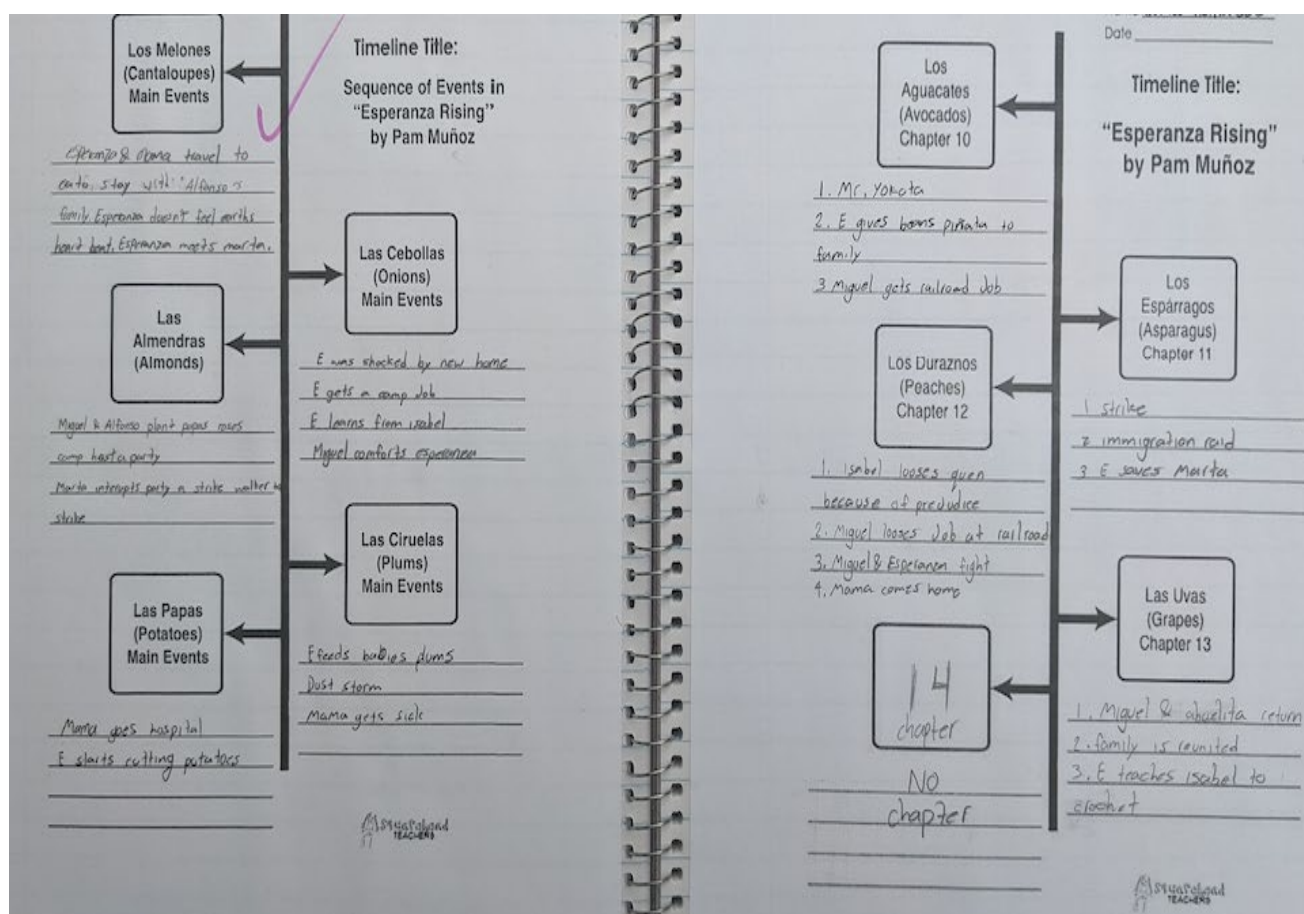 Los Melones
(Cantaloupes)
Main Events
Timeline Title:
Sequence of Events in
"Esperanza Rising"
by Pam Muñoz
Esperanza & Mama travel to
stay with Alfonso's
family. Esperanza doesn't feel earths
heart beat. Esperanza meets marta.
Las Cebollas
(Onions)
Main Events
E was shocked by new home
E gets a camp Job
E learns from isabel
Miguel comforts esperanza
Las
Almendras
(Almonds)
Miguel & Alfonso plant papas roses
camp hast a party
Marta interupts party a strike
strike
Las Ciruelas
(Plums)
Main Events
E feeds babies plums
Dust storm
Mama gets sick
Las Papas
(Potatoes)
Main Events
Mama goes hospital
E starts cutting potatoes
TEACHERS
Date
Timeline Title:
"Esperanza Rising"
by Pam Muñoz
Los
Aguacates
(Avocados)
Chapter 10
1. Mr. Yokota
2. E gives beans piñata to
family
3 Miguel gets railroad Job
Los
Espárragos
(Asparagus)
Chapter 11
1 strike
2 immigration raid
3 E saves Marta
Los Duraznos
(Peaches)
Chapter 12
1. isabel looses quen
because of predudice
2. Miguel looses Job at railroad
3. Miguel & Esperanza fight
4. Mama comes home
Las Uvas
(Grapes)
Chapter 13
1. Miguel & abuelita return
2. family is reunited
3. E teaches isabel to
crochet
14
chapter
NO
chapter
TEACHERS